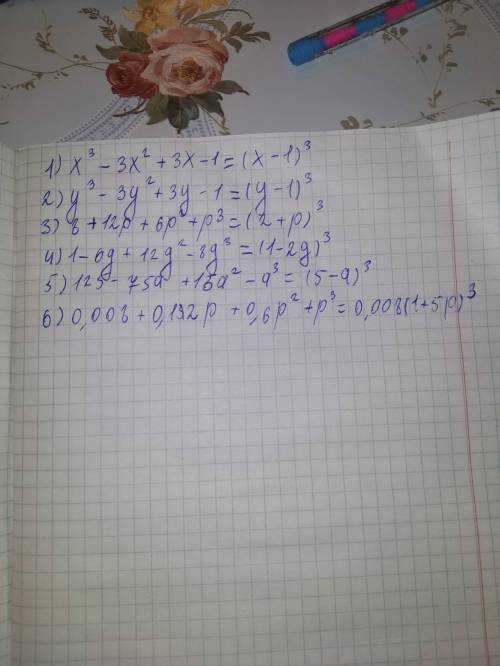 1) x³ - 3x² + 3x - 1 = (x - 1)³
2) y³ - 3y² + 3y - 1 = (y - 1)³
3) 8 + 12p + 6p² + p³ = (2 + p)³
4) 1 - 6g + 12g² - 8g³ = (1 - 2g)³
5) 125 - 75a + 15a² - a³ = (5 - a)³
6) 0,008 + 0,132p + 0,6p² + p³ = 0,008(1 + 5p)³